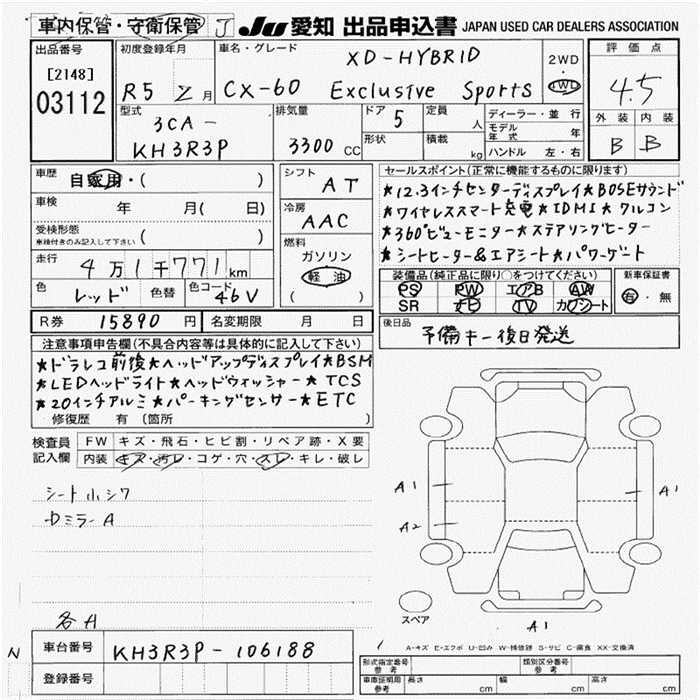 車内保管・守衛保管 J JU 愛知 出品申込書 JAPAN USED CAR DEALERS ASSOCIATION
出品番号 初度登録年月 車名・グレード XD-HYBRID 2WD 評価点
[2148] R5 2月 CX-60 Exclusive Sports ・ 4WD 4.5
03112 型式 排気量 ドア 5 定員 人 ディーラー・並行 外装 内装
3CA- 3300CC 形状 積載 kg モデル年式 年 B B
KH3R3P ハンドル 左・右
車歴 自家用・( ) シフト AT セールスポイント(正常に機能するものに限ります)
車検 年 月( 日) 冷房 AAC ★12.3インチセンターディスプレイ★BOSEサウンド
受検形態 ( ) ★ワイヤレススマート充電★IDMI★クルコン
車検付きのみ記入して下さい 燃料 ★360°ビューモニター★ステアリングヒーター
走行 4万1千771km ガソリン ★シートヒーター&エアシート★パワーゲート
色 レッド 色替 色コード 46V 軽油 ( )
装備品(純正品に限り○をつけてください) 新車保証書
PS PW エアB AW 有・無
SR ナビ TV カワシート
R券 15890円 名変期限 月 日 後日品 予備キー後日発送
注意事項申告欄(不具合内容等は具体的に記入して下さい)
★ドラレコ前後★ヘッドアップディスプレイ★BSM
★LEDヘッドライト★ヘッドウォッシャー★TCS
★20インチアルミ★パーキングセンサー★ETC
修復歴 有(箇所 )
検査員記入欄 FW キズ・飛石・ヒビ割・リペア跡・X要
内装 キズ・汚レ・コゲ・穴・スレ・キレ・破レ
シート小シワ
中ミラーA
各A
A1
A2
A1
スペア
A1
A-キズ E-エクボ U-凹み W-補修跡 S-サビ C-腐食 XX-交換済
N 車台番号 KH3R3P-106188
登録番号
形式指定番号 参考 類別区分番号 参考
車庫証明用 参考 長さ cm 幅 cm 高さ cm